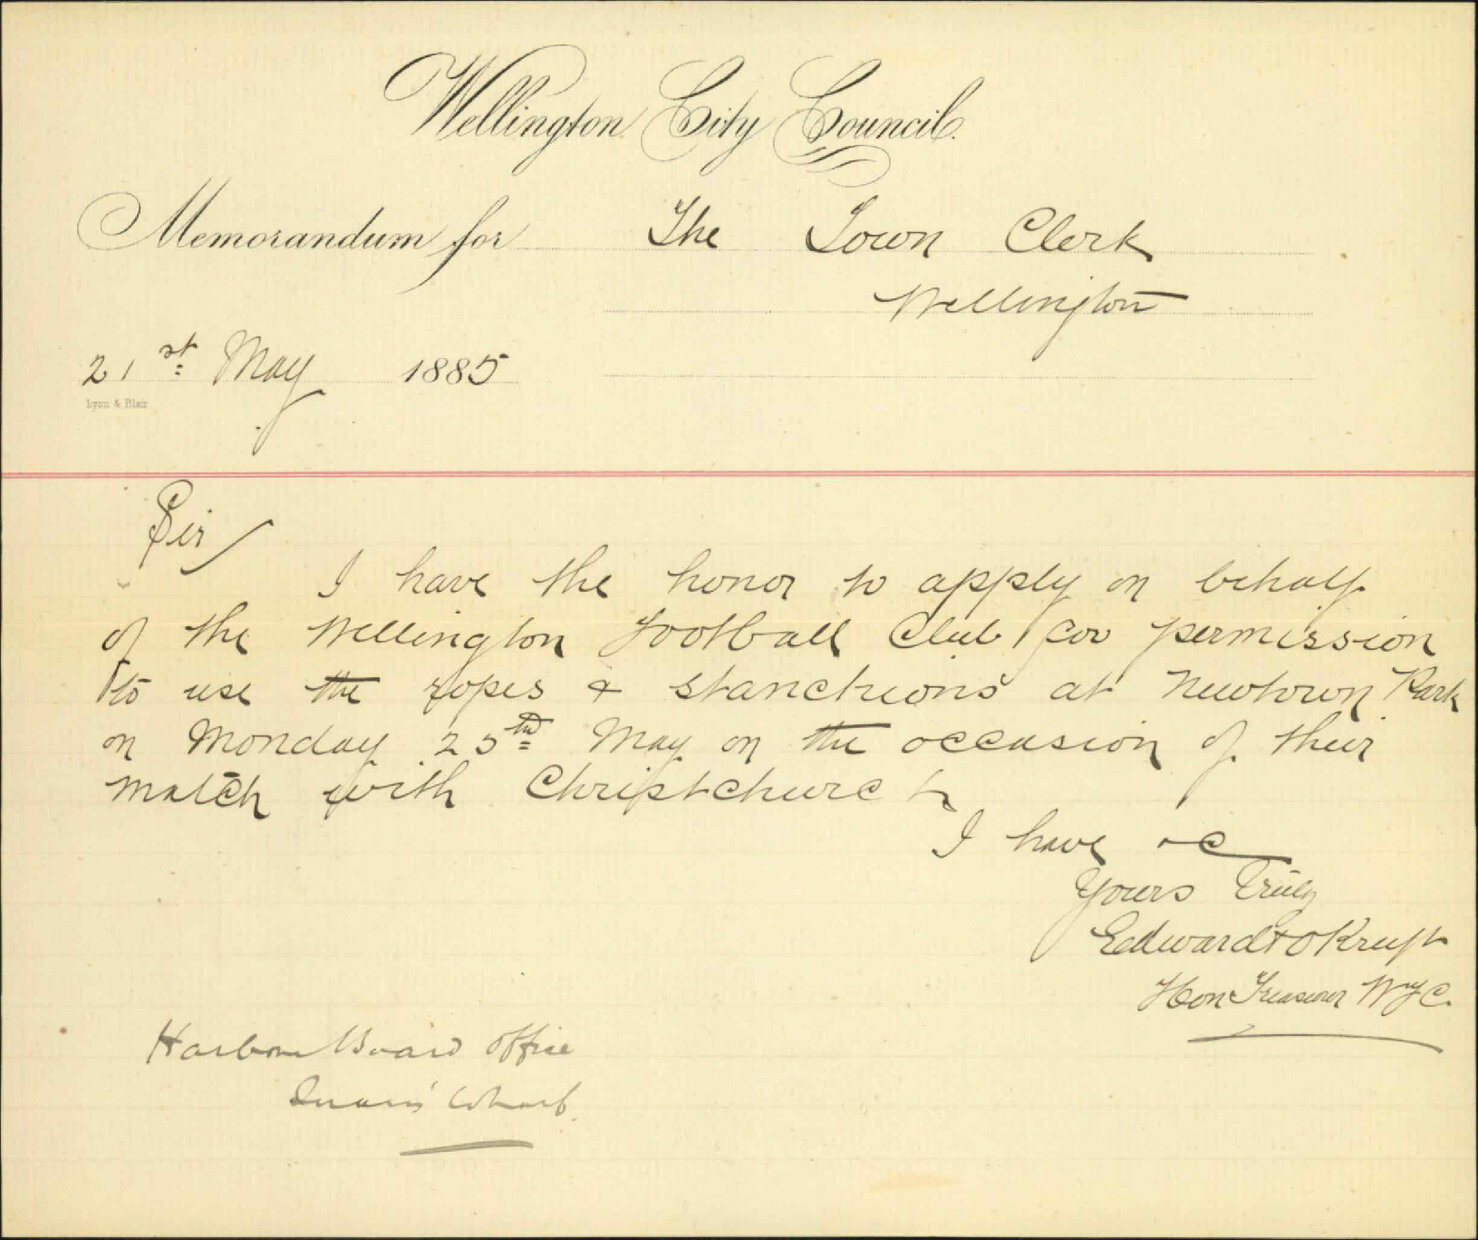 Wellington City Council.
Memorandum for The Town Clerk
Wellington
21st May 1885
Lyon & Blair
Sir
I have the honor to apply on behalf
of the Wellington Football Club for permission
to use the ropes & stanchions at Newtown Park
on Monday 25th May on the occasion of their
match with Christchurch
I have &c
Yours Truly
Edward
Hon Treasurer
Harbour Board Office
Queens Wharf.